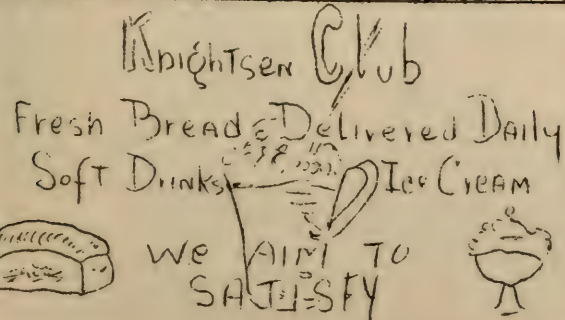 Knightsen Club
Fresh Bread Delivered Daily
Soft Drinks Ice Cream
WE AIM TO
SATISFY